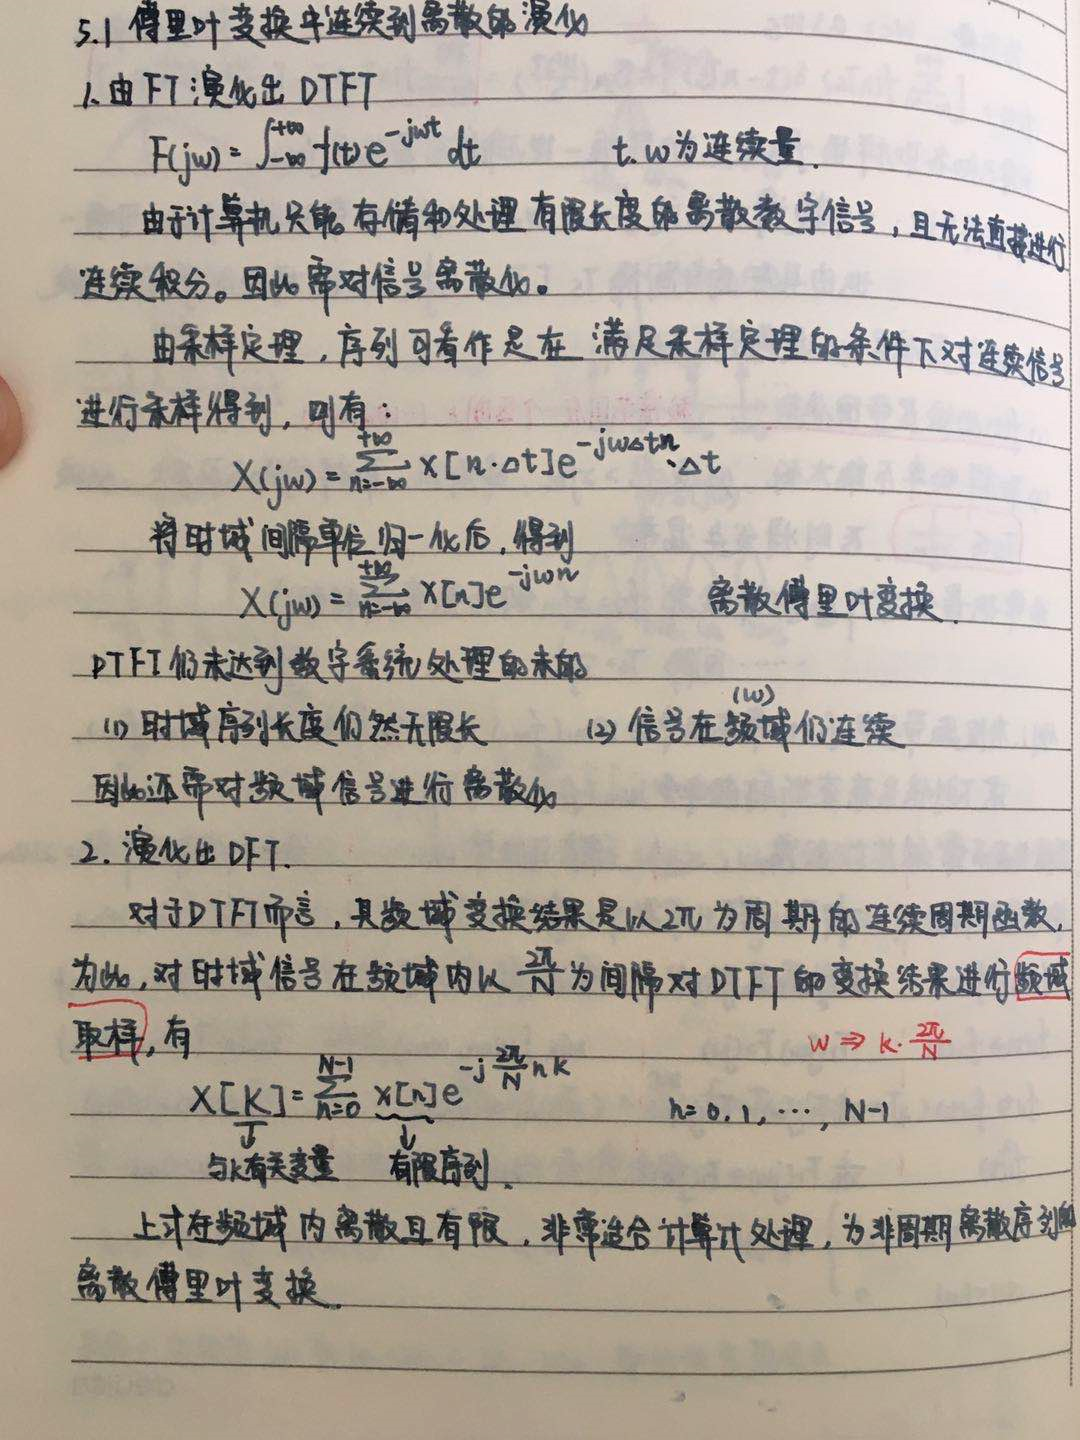 5.1 傅里叶变换中连续到离散的演化
1. 由FT演化出DTFT
F(jw) = ∫_{-∞}^{+∞} f(t)e^{-jwt} dt t. w为连续量.
由于计算机只能存储和处理有限长度的离散数字信号, 且无法直接进行
连续积分。因此需对信号离散化。
由采样定理, 序列可看作是在满足采样定理的条件下对连续信号
进行采样得到, 则有:
X(jw) = ∑_{n=-∞}^{+∞} x[n·Δt]e^{-jwΔtn}·Δt
将时域间隔单位归一化后, 得到
X(jw) = ∑_{n=-∞}^{+∞} x[n]e^{-jwn} 离散傅里叶变换.
DTFT仍未达到数字系统处理的末的
(w)
(1) 时域序列长度仍然无限长 (2) 信号在频域仍连续
因此还需对频域信号进行离散化
2. 演化出DFT.
对于DTFT而言, 其频域变换结果是以2π为周期的连续周期函数,
为此, 对时域信号在频域内以2π/N为间隔对DTFT的变换结果进行频域
取样, 有 w ⇒ k·2π/N
X[K] = ∑_{n=0}^{N-1} x[n]e^{-j2π/N nk} n=0,1,…, N-1
与k有关变量 有限序列.
上式在频域内离散且有限, 非常适合计算计处理, 为非周期离散序列的
离散傅里叶变换.